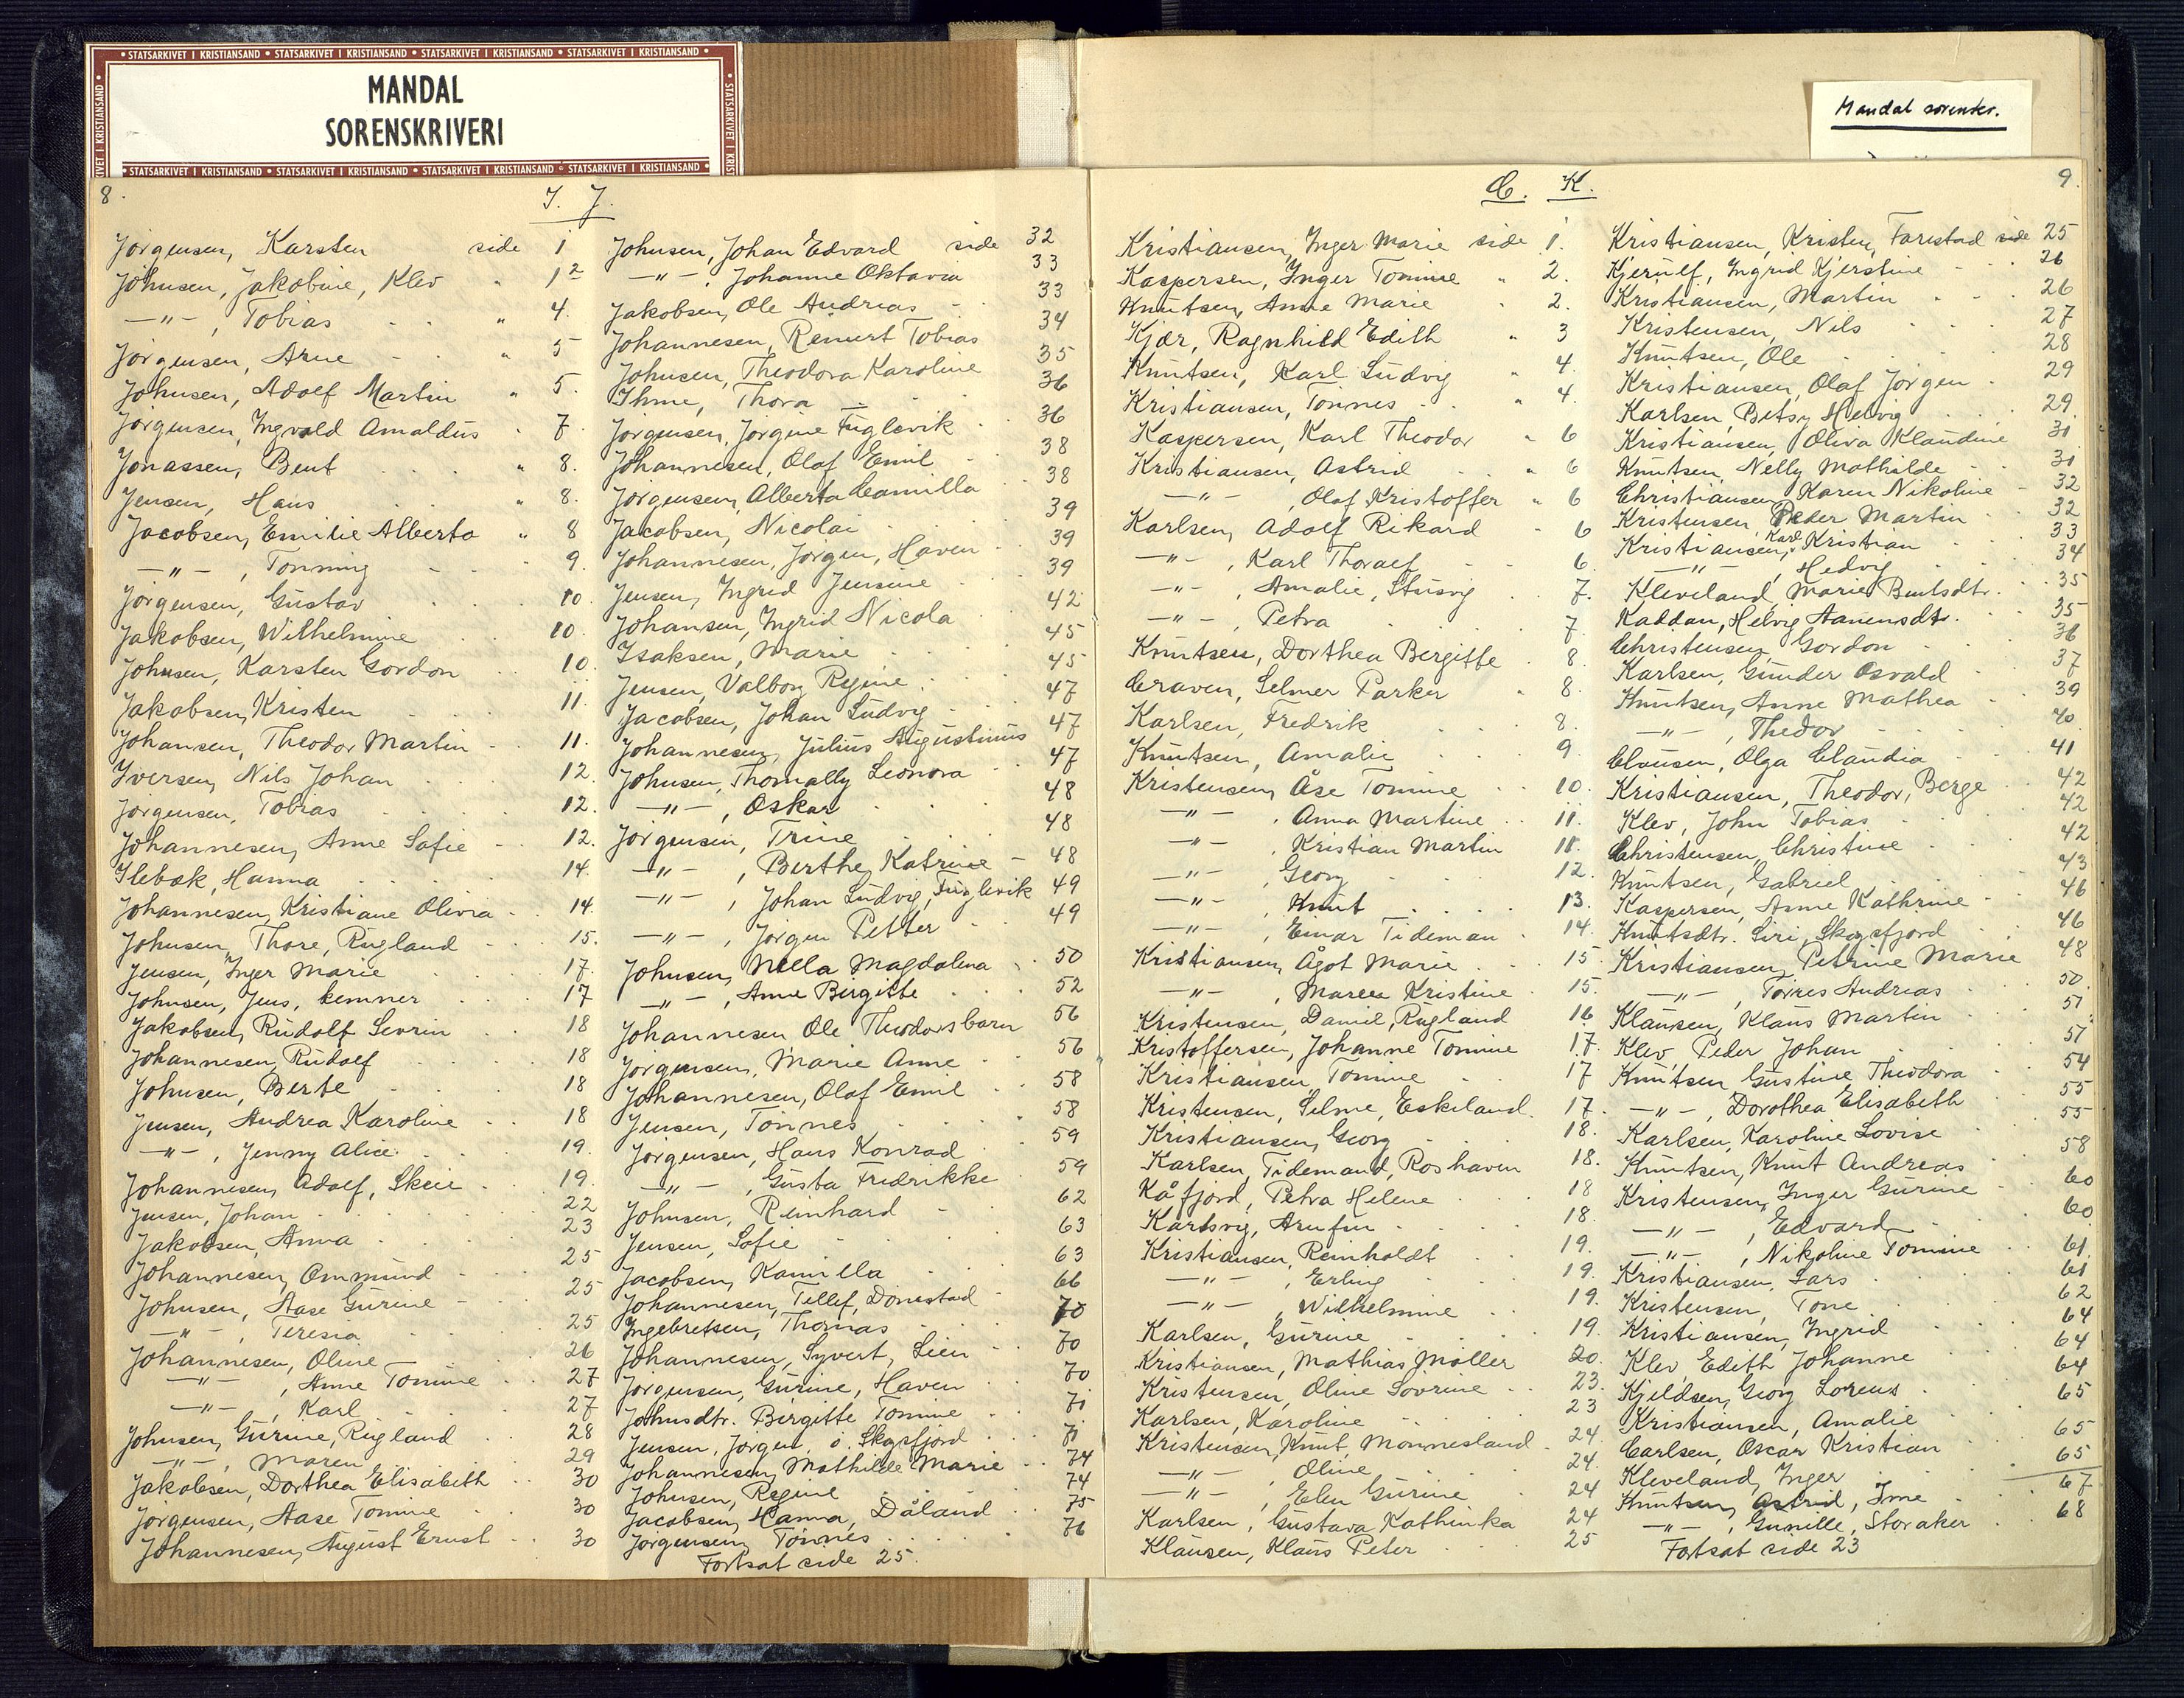 • STATSARKIVET I KRISTIANSAND • STATSARKIVET I KRISTIANSAND • STATSARKIVET I KRISTIANSAND • STATSARKIVET I KRISTIANSAND •
MANDAL
SORENSKRIVERI
• STATSARKIVET I KRISTIANSAND • STATSARKIVET I KRISTIANSAND • STATSARKIVET I KRISTIANSAND • STATSARKIVET I KRISTIANSAND •
Mandal sorenskr.
8.
I. J.
Jörgensen, Karsten side 1
Johnsen, Jakobine, Klev " 1²
—"— , Tobias " 4.
Jörgensen, Arne " 5
Johnsen, Adolf Martin " 5.
Jörgensen, Ingvald Arnoldus " 7.
Jonassen, Bent " 8.
Jensen, Hans " 8.
Jacobsen, Emilie Alberta " 8
—"— , Tonning 9.
Jörgensen, Gustav 10.
Jakobsen, Wilhelmine 10.
Johnsen, Karsten Gordon 10.
Jakobsen, Kristen 11.
Johansen, Theodor Martin 11.
Iversen, Nils Johan 12.
Jörgensen, Tobias 12.
Johannesen, Anne Sofie 12.
Ilebæk, Hanna 14.
Johannesen, Kristiane Olivia 14.
Johnsen, Thore, Rugland 15.
Jensen, Inger Marie 17.
Johnsen, Jens, kemner 17
Jakobsen, Rudolf Severin 18
Johannesen, Rudolf 18
Johnsen, Berte 18
Jensen, Andrea Karoline 18
—"— , Jenny Alice 19.
Johannesen, Adolf, Skeie 19.
Jensen, Johan 22
Jakobsen, Anna 23
Johannesen, Ommund 25
Johnsen, Aase Gurine 25
—"— , Teresia 25
Johannesen, Oline 26
—"— , Anne Tomine 27
—"— , Karl 27
Johnsen, Gurine, Rugland 28
—"— , Maren 29
Jakobsen, Dorthea Elisabeth 30
Jörgensen, Aase Tomine 30
Johannesen, August Ernst 30
Johnsen, Johan Edvard side 32
—"— , Johanne Oktavia 33
Jakobsen, Ole Andreas 33
Johannesen, Reinert Tobias 34
Johnsen, Theodora Karoline 35
Ihme, Thora 36
Jörgensen, Jörgine Fuglevik 36
Johannesen, Olaf Emil 38
Jörgensen, Alberta Camilla 38
Jacobsen, Nicolai 39
Johannesen, Jörgen, Haven 39
Jensen, Ingrid Jensine 39
Johansen, Ingrid Nicola 42
Isaksen, Marie 45
Jensen, Valborg Regine 45
Jacobsen, Johan Ludvig 47
Johannesen, Julius Augustinus 47
Johnsen, Thomally Leonora 47
—"— , Oskar 48
Jörgensen, Trine 48
—"— , Berthe Katrine 48
—"— , Johan Ludvig, Fuglevik 49
—"— , Jörgen Petter 49
Johnsen, Nella Magdalena 50
—"— , Anne Birgitte 52
Johannesen, Ole Theodorsbarn 56
Jörgensen, Marie Anne 56
Johannesen, Olaf Emil 58
Jensen, Tönnes 58
Jörgensen, Hans Konrad 59
—"— , Gusta Fredrikke 59
Johnsen, Reinhard 62
Jensen, Sofie 63
Jacobsen, Kamilla 63
Johannesen, Tellef, Dönestad 66
Ingebretsen, Thomas 70
Johannesen, Syvert, Lien 70
Jörgensen, Gurine, Haven 70
Johnsdtr. Birgitte Tomine 71
Jensen, Jörgen, ö. Skogsfjord 71
Johannesen, Mathilde Marie 74
Johnsen, Regine 74
Jacobsen, Hanna, Dåland 75
Jörgensen, Tönnes 76
Fortsat side 25.
9.
C. K.
Kristiansen, Inger Marie side 1.
Kaspersen, Inger Tomine " 2.
Knutsen, Anne Marie " 2.
Kjær, Ragnhild Edith " 3
Knutsen, Karl Ludvig " 4.
Kristiansen, Tönnes " 4.
Kaspersen, Karl Theodor " 6
Kristiansen, Astrid " 6
—"— , Olaf Kristoffer " 6
Karlsen, Adolf Rikard 6
—"— , Karl Thoralf 6.
—"— , Amalie, Stusvig 7.
—"— , Petra 7
Knutsen, Dorthea Bergitte 8.
Craven, Selmer Parker " 8.
Karlsen, Fredrik 8.
Knutsen, Amalie 9.
Kristensen, Åse Tomine 10.
—"— , Anna Martine 11.
—"— , Kristian Martin 11.
—"— , Georg 12.
—"— , Knut 13.
—"— , Einar Tideman 14.
Kristiansen, Ågot Marie 15.
—"— , Maren Kristine 15.
Kristensen, Daniel, Rugland 16
Kristoffersen, Johanne Tomine 17.
Kristiansen, Tomine 17
Kristensen, Selme, Eskeland 17.
Kristiansen, Georg 18.
Karlsen, Tidemand, Roshaven 18.
Kåfjord, Petra Helene 18
Karlsvig, Arnfin 18.
Kristiansen, Reinholdt 19.
—"— , Erling 19.
—"— , Wilhelmine 19.
Karlsen, Gurine 19.
Kristiansen, Mathias Möller 20.
Kristensen, Oline Sovrine 23.
Karlsen, Karoline 23
Kristensen, Knut, Monnesland 24.
—"— , Oline 24.
—"— , Elen Gurine 24
Karlsen, Gustava Kathinka 24
Klausen, Klaus Peter 25
Kristiansen, Kristen, Farestad side 25
Kjerulf, Ingrid Kjerstine 26
Kristiansen, Martin 26
Kristensen, Nils 27
Knutsen, Ole 28
Kristiansen, Olaf Jörgen 29
Karlsen, Betsy Helvig 29.
Kristiansen, Oliva Klaudine 31
Knutsen, Nelly Mathilde 31
Christiansen, Karen Nikoline 32
Kristensen, Peder Martin 32
Kristiansen, Karl Kristian 33
—"— , Hedvig 34
Kleveland, Marie Bentsdtr. 35
Kaddan, Helvig Aanensdtr. 35
Christensen, Gordon 36
Karlsen, Gunder Osvald 37
Knutsen, Anne Mathea 39
—"— , Thedor 40
Clausen, Olga Claudia 41
Kristiansen, Theodor, Berge 42
Klev, John Tobias 42
Christensen, Christine 42
Knutsen, Gabriel 43
Kaspersen, Anne Kathrine 46
Knutsdtr. Siri, Skogsfjord 46
Kristiansen, Petrine Marie 48
—"— , Torres Andreas 50.
Klausen, Klaus Martin 51
Klev, Peder Johan 51
Knutsen, Gustine Theodora 54
—"— , Dorothea Elisabeth 55
Karlsen, Karoline Lovise 55
Knutsen, Knut Andreas 58
Kristensen, Inger Gurine 60
—"— , Edvard 60
—"— , Nikoline Tomine 61.
Kristiansen, Lars 61
Kristensen, Tone 62
Kristiansen, Ingrid 64
Klev, Edith Johanne 64
Kjeldsen, Georg Lorens 64
Kristiansen, Amalie 65
Carlsen, Oscar Kristian 65
Kleveland, Inger 65
Knutsen, Astrid, Ime 67
—"— , Gunille, Storaker 68
Fortsat side 23